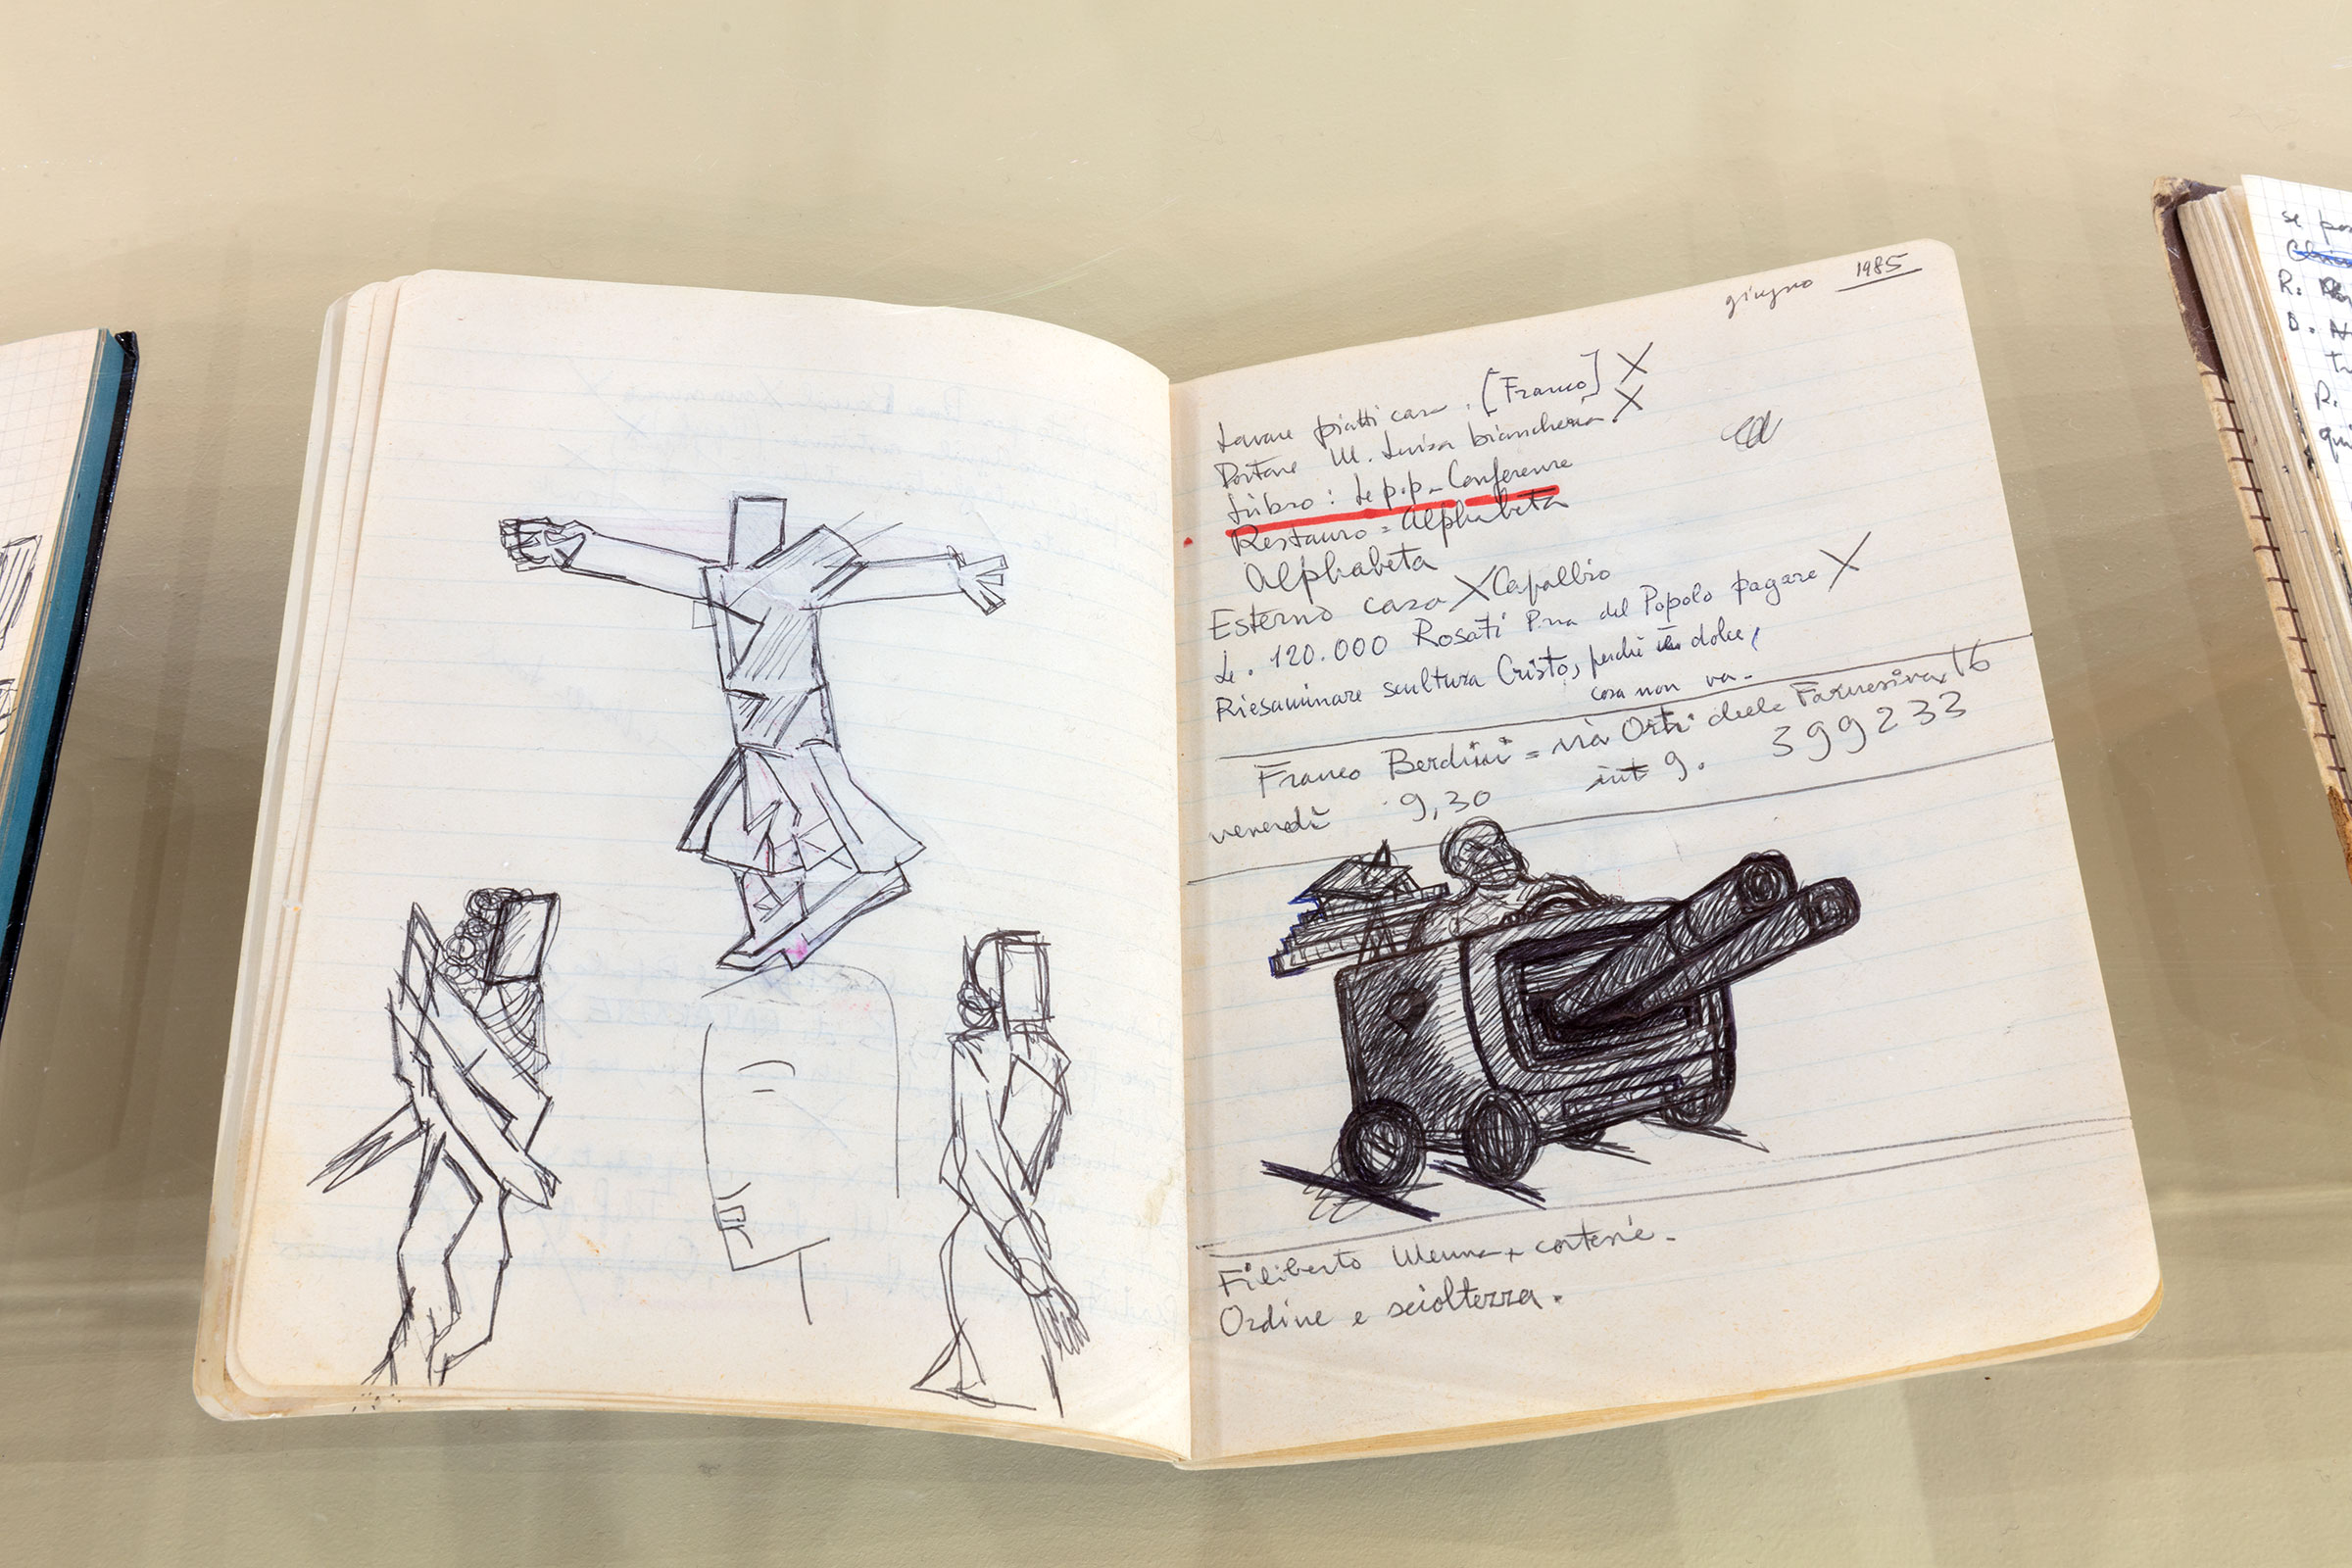 giugno 1985
Lavare piatti casa. [Franco] X
Portare M. Luisa biancheria. X
Libro: Le p.p. - Conferenze
Restauro = Alphabeta
Alphabeta
Esterno casa X Capalbio
L. 120.000 Rosati P.za del Popolo pagare X
Riesaminare scultura Cristo, perchè dolce,
cosa non va -
Franco Berdini = via Orti della Farnesina, 16
int 9. 399233
venerdì 9,30
Filiberto Menna + cortesie -
Ordine e scioltezza.
se
R.
D.
R.